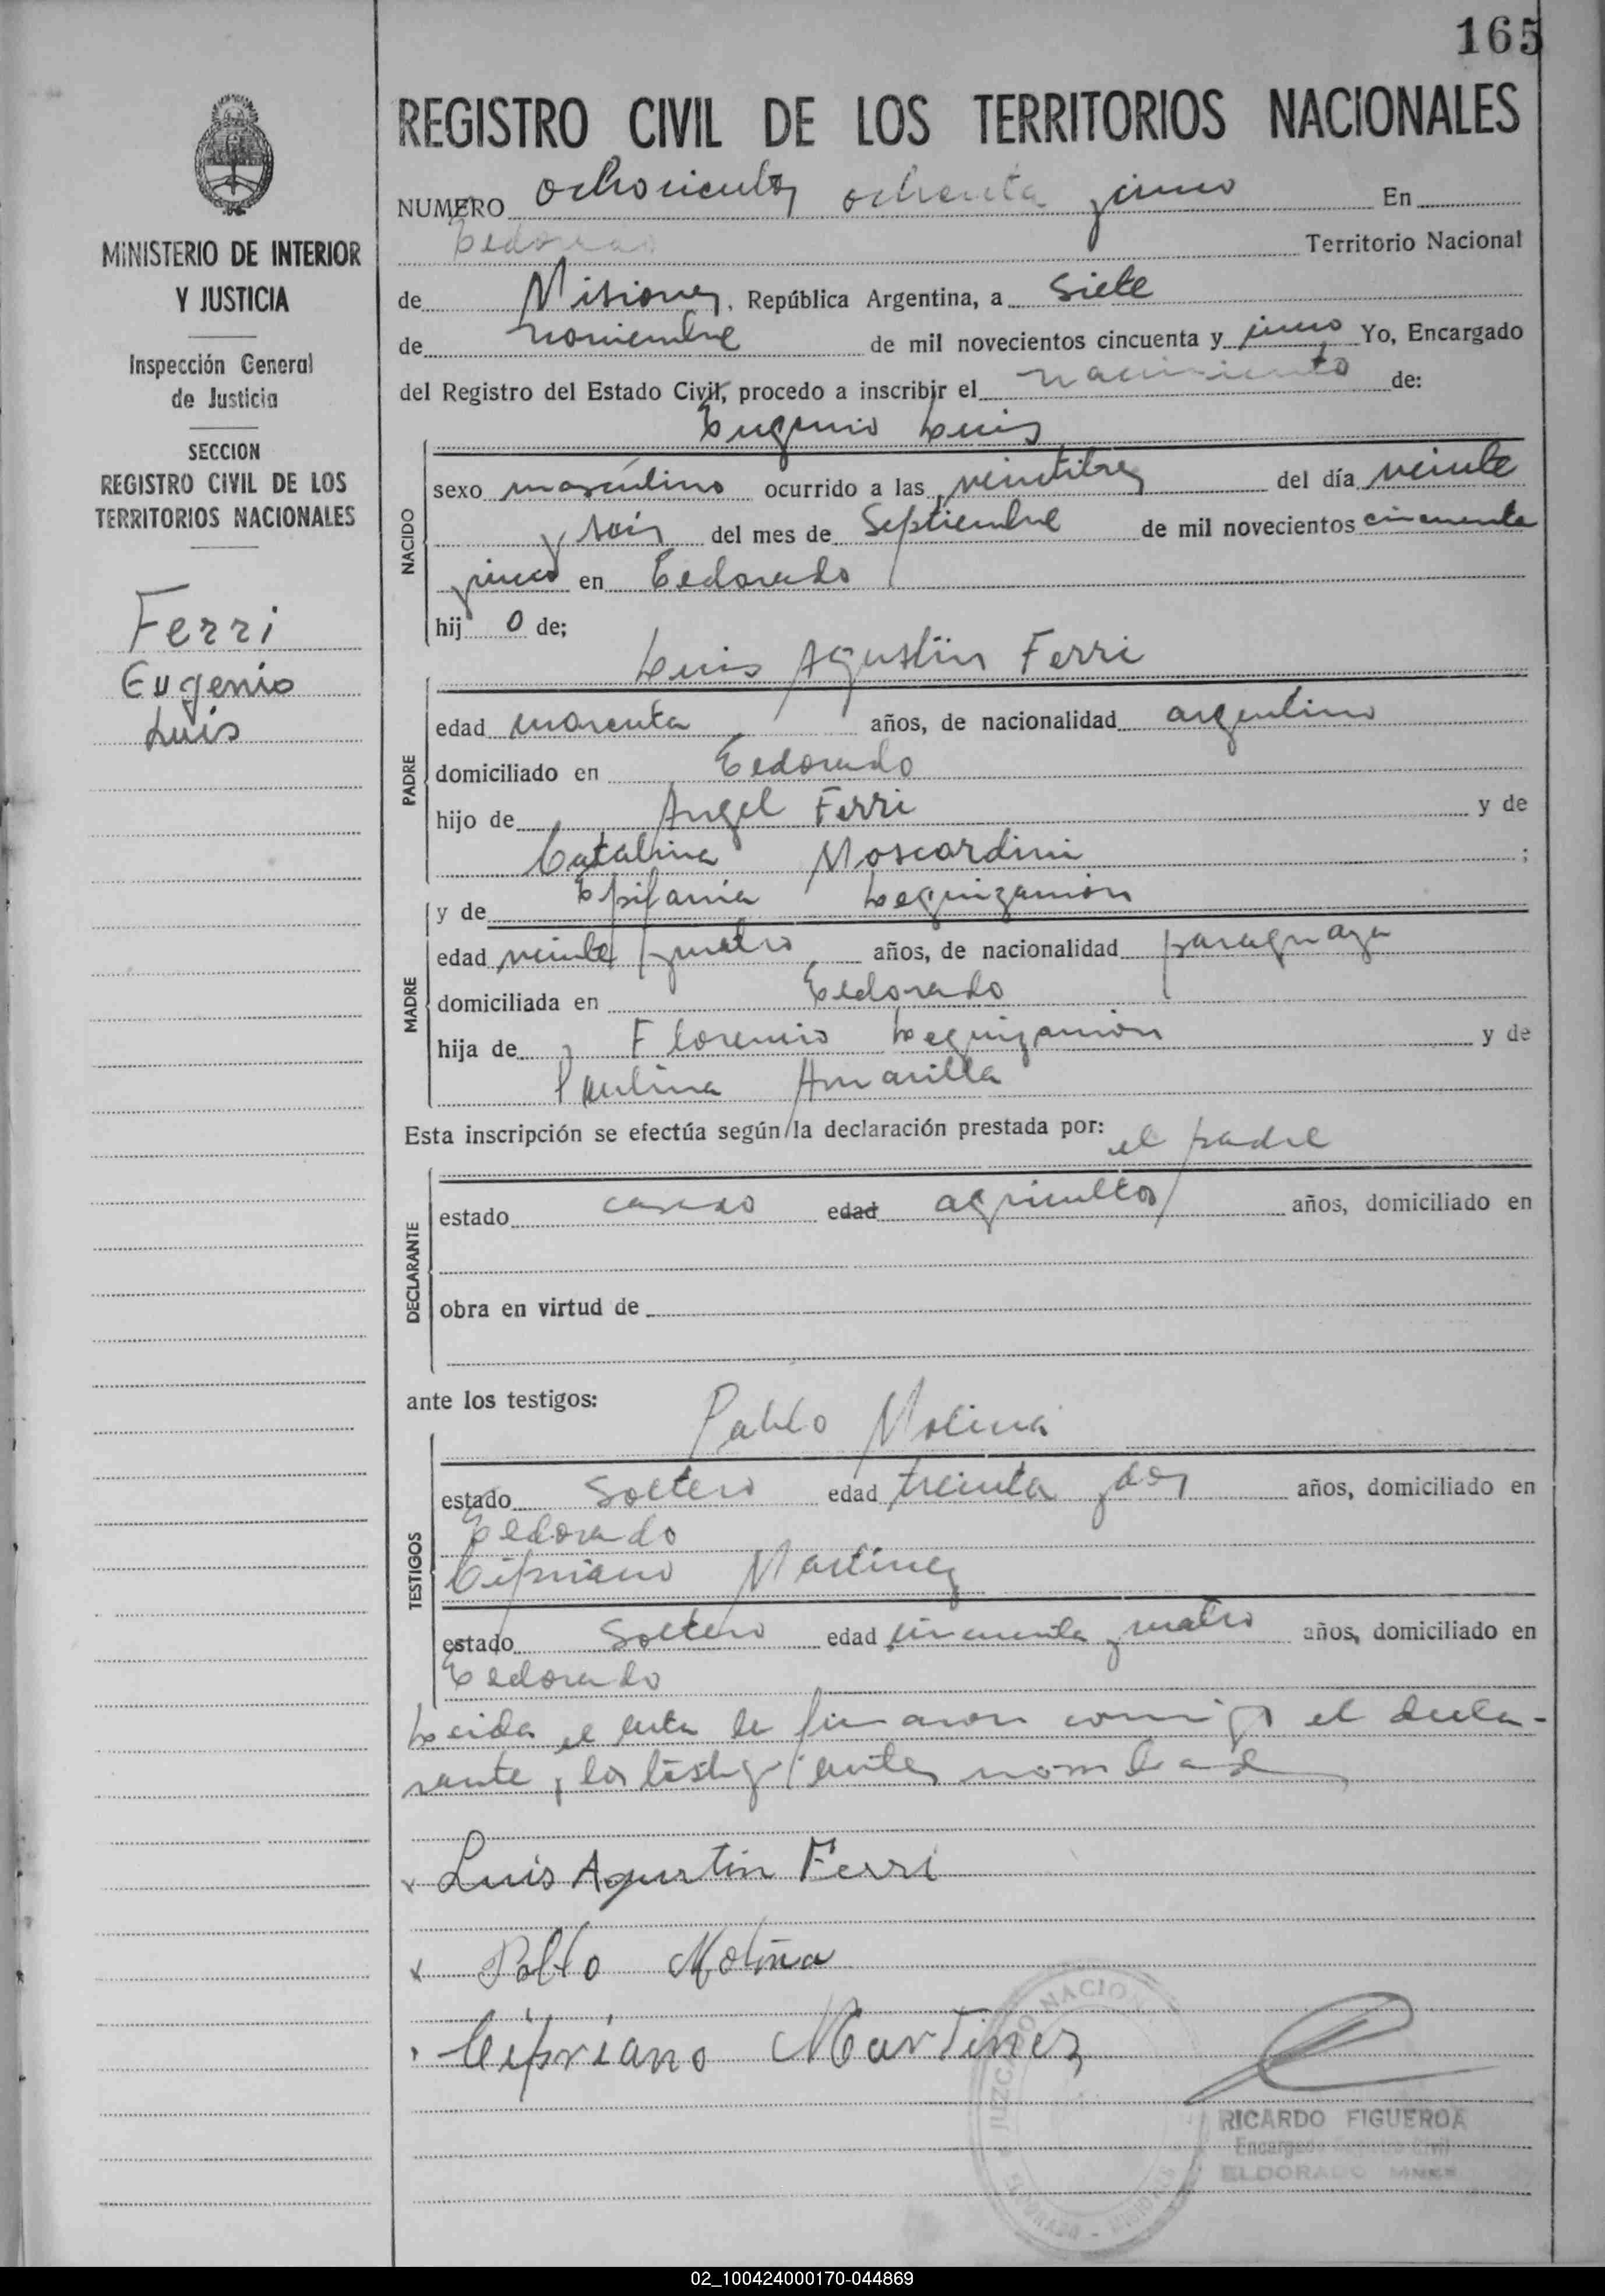 165
REGISTRO CIVIL DE LOS TERRITORIOS NACIONALES
MINISTERIO DE INTERIOR
Y JUSTICIA
Inspección General
de Justicia
SECCION
REGISTRO CIVIL DE LOS
TERRITORIOS NACIONALES
Ferri
Eugenio
Luis
NUMERO ochocientos ochenta y cinco En
Eldorado Territorio Nacional
de Misiones, República Argentina, a siete
de noviembre de mil novecientos cincuenta y cinco Yo, Encargado
del Registro del Estado Civil, procedo a inscribir el nacimiento de:
Eugenio Luis
NACIDO
sexo masculino ocurrido a las veintitres del día veinte
y seis del mes de Septiembre de mil novecientos cincuenta
y cinco en Eldorado
hij o de;
Luis Agustin Ferri
PADRE
edad cuarenta años, de nacionalidad argentino
domiciliado en Eldorado
hijo de Angel Ferri y de
Catalina Moscardini ;
y de Epifania Leguizamón
MADRE
edad veinte y cuatro años, de nacionalidad paraguaya
domiciliada en Eldorado
hija de Florencio Leguizamón y de
Paulina Amarilla
Esta inscripción se efectúa según la declaración prestada por: el padre
DECLARANTE
estado casado edad agricultor años, domiciliado en
obra en virtud de
ante los testigos:
Pablo Molina
TESTIGOS
estado Soltero edad treinta y dos años, domiciliado en
Eldorado
Cipriano Martinez
estado Soltero edad cincuenta y cuatro años, domiciliado en
Eldorado
Leida el acta la firmaron conmigo el decla-
rante y los testigos antes nombrad
x Luis Agustin Ferri
x Pablo Molina
Cipriano Martinez
JUZGADO NACIO
ELDORADO - MISIONES
RICARDO FIGUEROA
Encargado Registro Civil
ELDORADO MNES
02_100424000170-044869